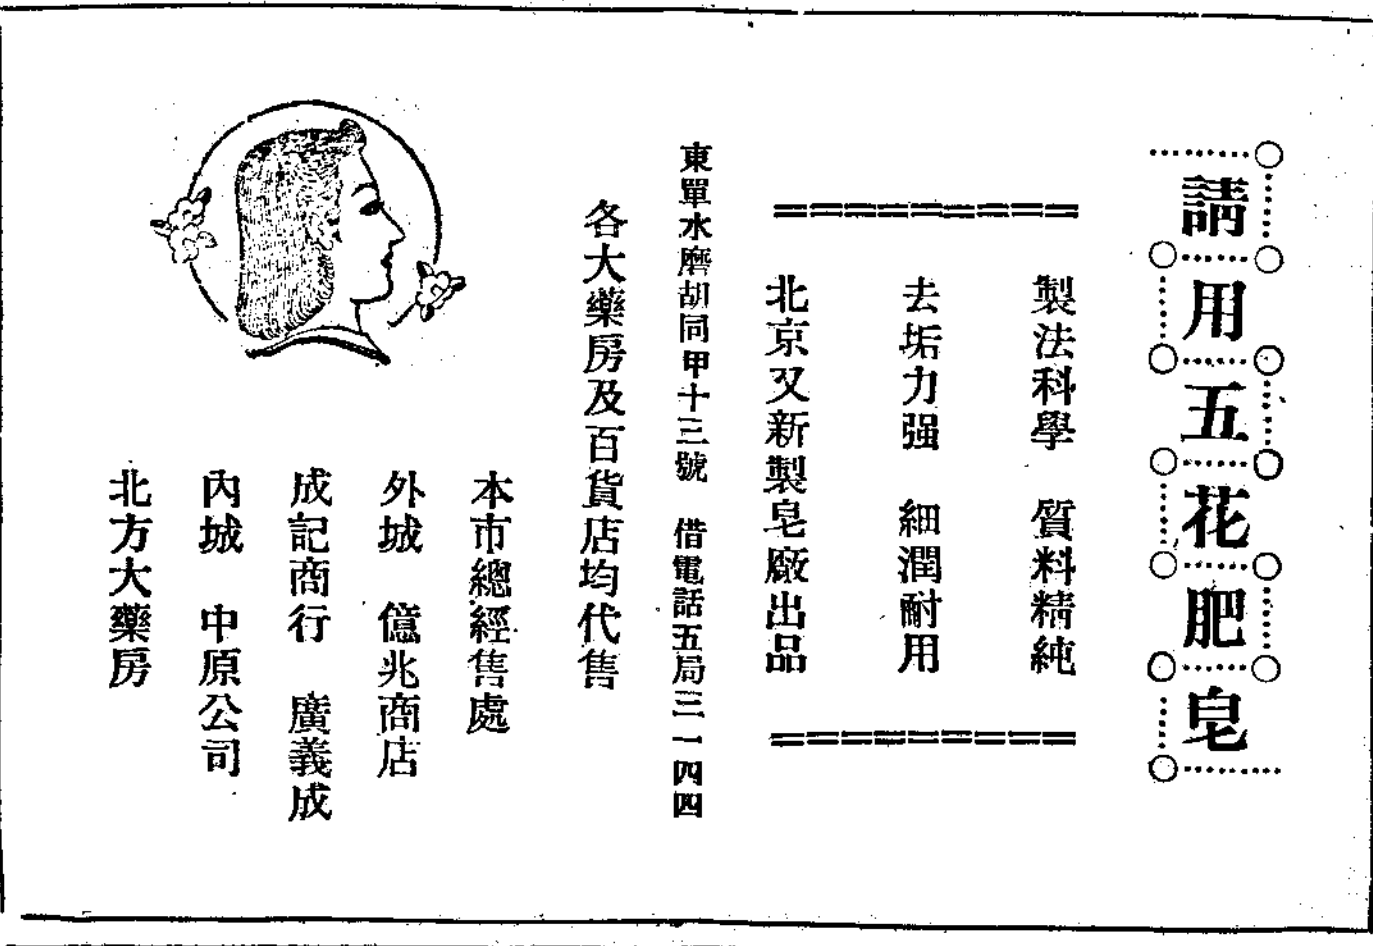 請用五花肥皂
製法科學　質料精純
去垢力强　細潤耐用
北京又新製皂廠出品
東單水磨胡同甲十三號　借電話五局三一四四
各大藥房及百貨店均代售
本市總經售處
外城　億兆商店
成記商行　廣義成
內城　中原公司
北方大藥房